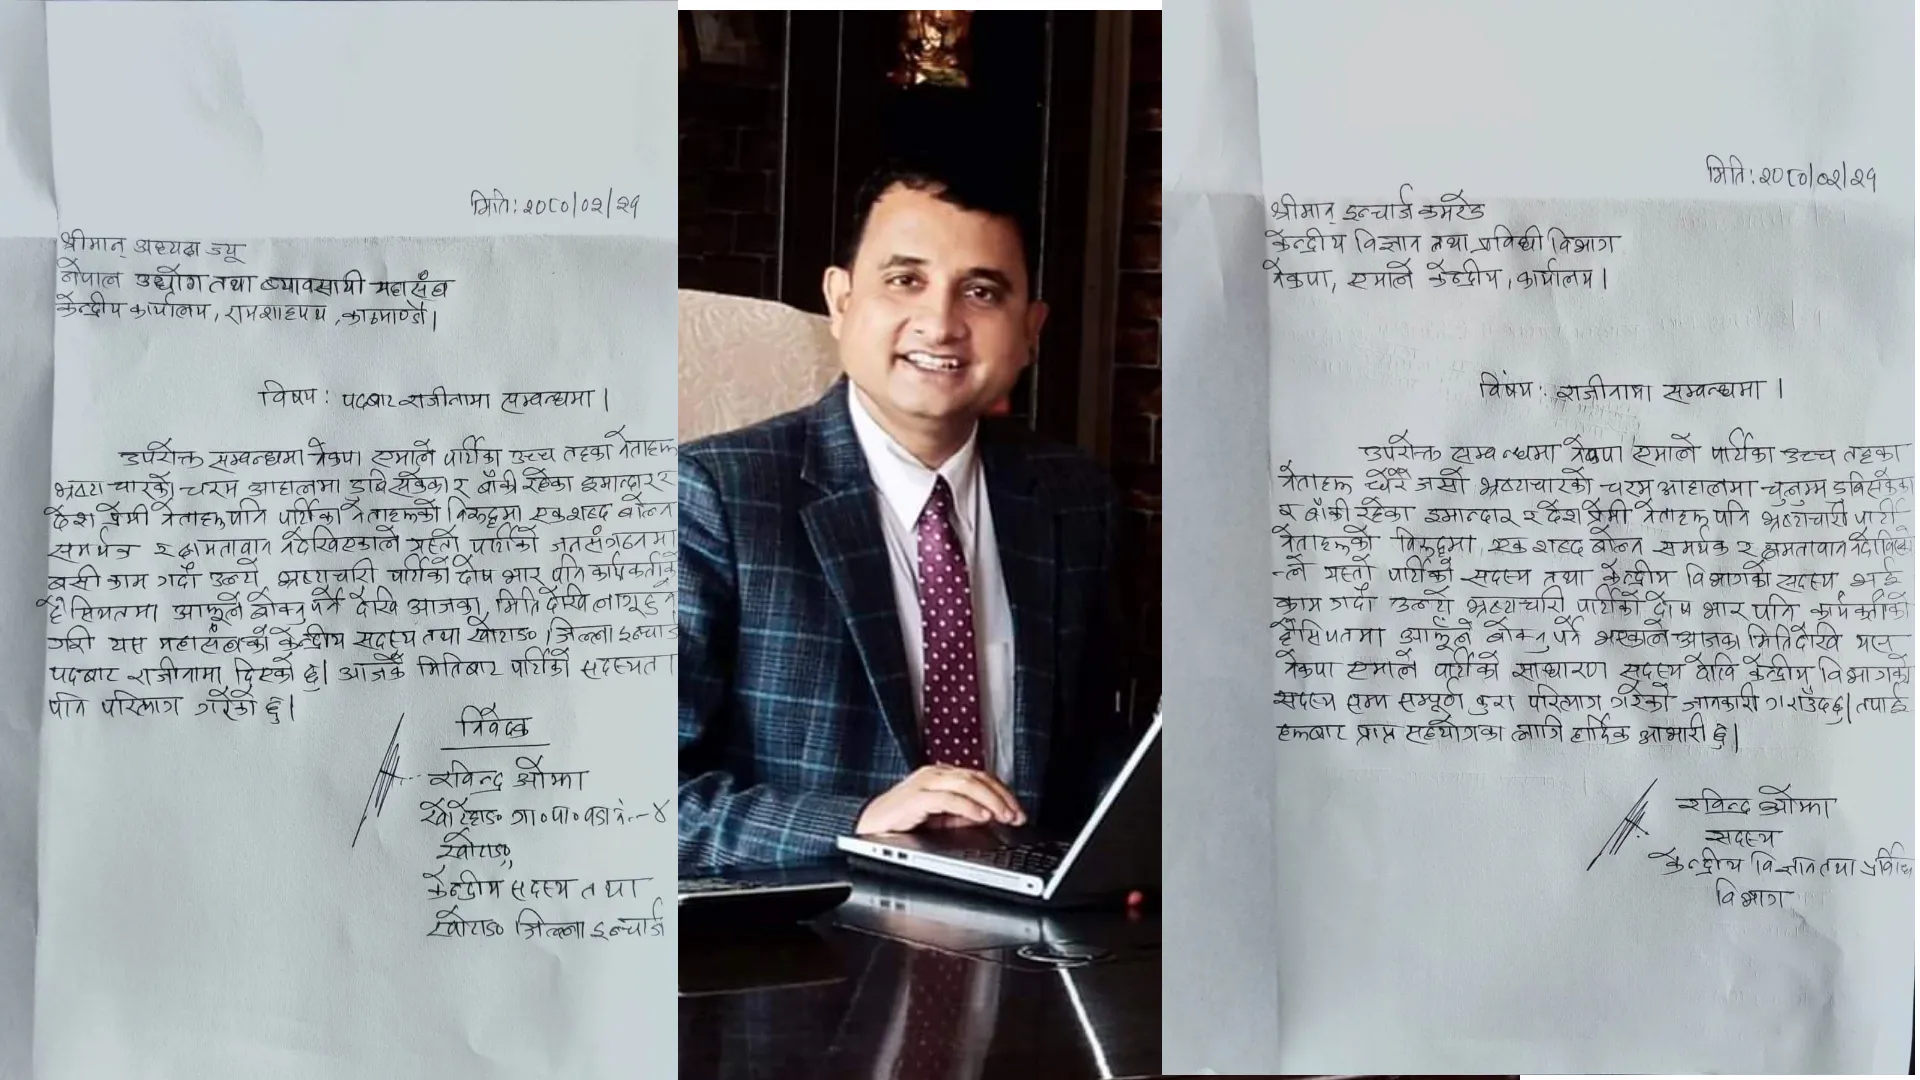 मिति: २०८०/०२/२१
श्रीमान् अध्यक्ष ज्यू
नेपाल उद्योग तथा व्यावसायी महासंघ
केन्द्रीय कार्यालय, रामशाहपथ, काठमाण्डौ।
विषय: पदबाट राजीनामा सम्वन्धमा।
उपरोक्त सम्वन्धमा नेकपा एमाले पार्टीका उच्च तहका नेताहरू
भ्रष्टाचारको चरम आहालमा डुबिसकेका र बाँकी रहेका इमान्दार र
देश प्रेमी नेताहरू पनि पार्टीका नेताहरूको विरुद्धमा एक शब्द बोल्न
समर्थक र क्षमतावान नदेखिएकाले यस्तो पार्टीको जनसंगठनमा
बसी काम गर्दा उन्ने भ्रष्टाचारी पार्टीको दोष भार पनि कार्यकर्ताको
हैसियतमा आफूले बोक्नु पर्ने देखि आजका मिति देखि लागू हुने
गरी यस महासंघको केन्द्रीय सदस्य तथा खोटाङ जिल्ला इन्चार्ज
पदबाट राजीनामा दिएको छु। आजकै मितिबाट पार्टीको सदस्यता
पनि परित्याग गरेको छु।
निवेदक
रविन्द्र ओझा
खोटेहाङ गा॰पा॰ वडा नं.-४
खोटाङ
केन्द्रीय सदस्य तथा
खोटाङ जिल्ला इन्चार्ज
मिति: २०८०/०२/२१
श्रीमान् इन्चार्ज कमरेड
केन्द्रीय विज्ञान तथा प्रविधी विभाग
नेकपा, एमाले केन्द्रीय, कार्यालय।
विषय: राजीनामा सम्वन्धमा।
उपरोक्त सम्वन्धमा नेकपा एमाले पार्टीका उच्च तहका
नेताहरू धेरै जसो भ्रष्टाचारको चरम आहालमा चुर्लुम्म डुबिसकेका
र बाँकी रहेका इमान्दार र देश प्रेमी नेताहरू पनि भ्रष्टाचारी पार्टी
नेताहरूको विरुद्धमा एक शब्द बोल्न समर्थक र क्षमतावान नदेखिए
-ले यस्तो पार्टीको सदस्य तथा केन्द्रीय विभागको सदस्य भई
काम गर्दा उन्ने भ्रष्टाचारी पार्टीको दोष भार पनि कार्यकर्ताको
हैसियतमा आफूले बोक्नु पर्ने भएकोले आजका मितिदेखि यस
नेकपा एमाले पार्टीको साधारण सदस्य देखि केन्द्रीय विभागको
सदस्य सम्म सम्पूर्ण कुरा परित्याग गरेको जानकारी गराउँदछु। तपाई
हरूबाट प्राप्त सहयोगका लागि हार्दिक आभारी छु।
रविन्द्र ओझा
सदस्य
केन्द्रीय विज्ञान तथा प्रविधि
विभाग